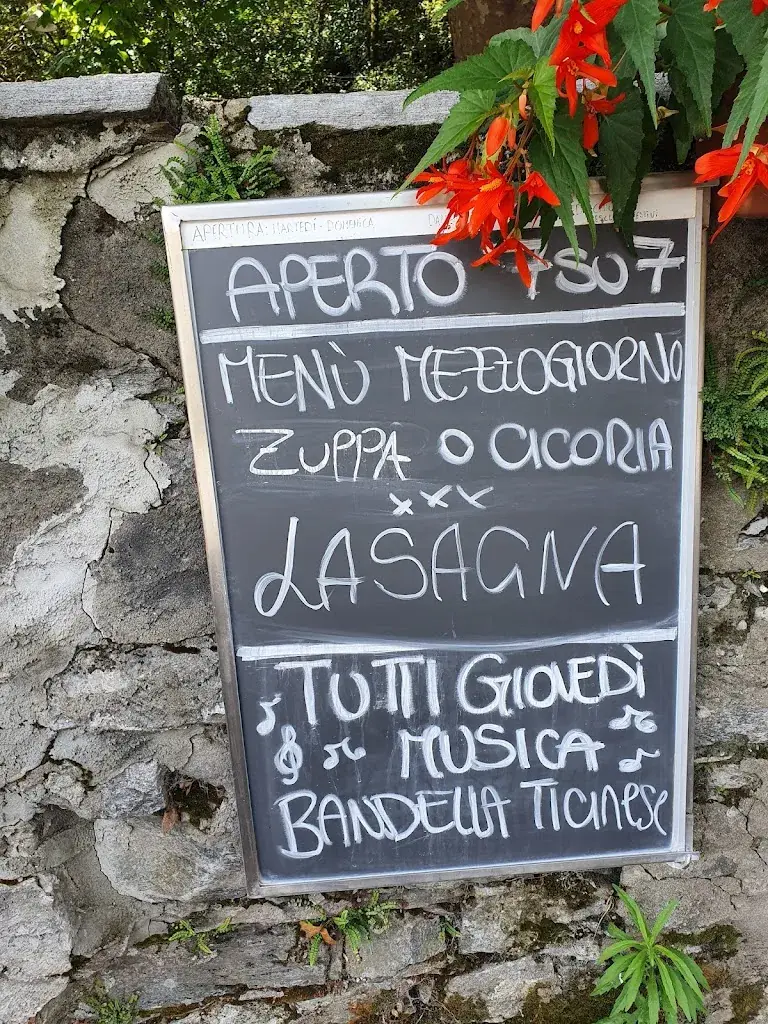 APERTURA: MARTEDÍ - DOMENICA
APERTO 7 SU 7
MENÙ MEZZOGIORNO
ZUPPA O CICORIA
LASAGNA
TUTTI GIOVEDÌ
MUSICA
BANDELLA TICINESE